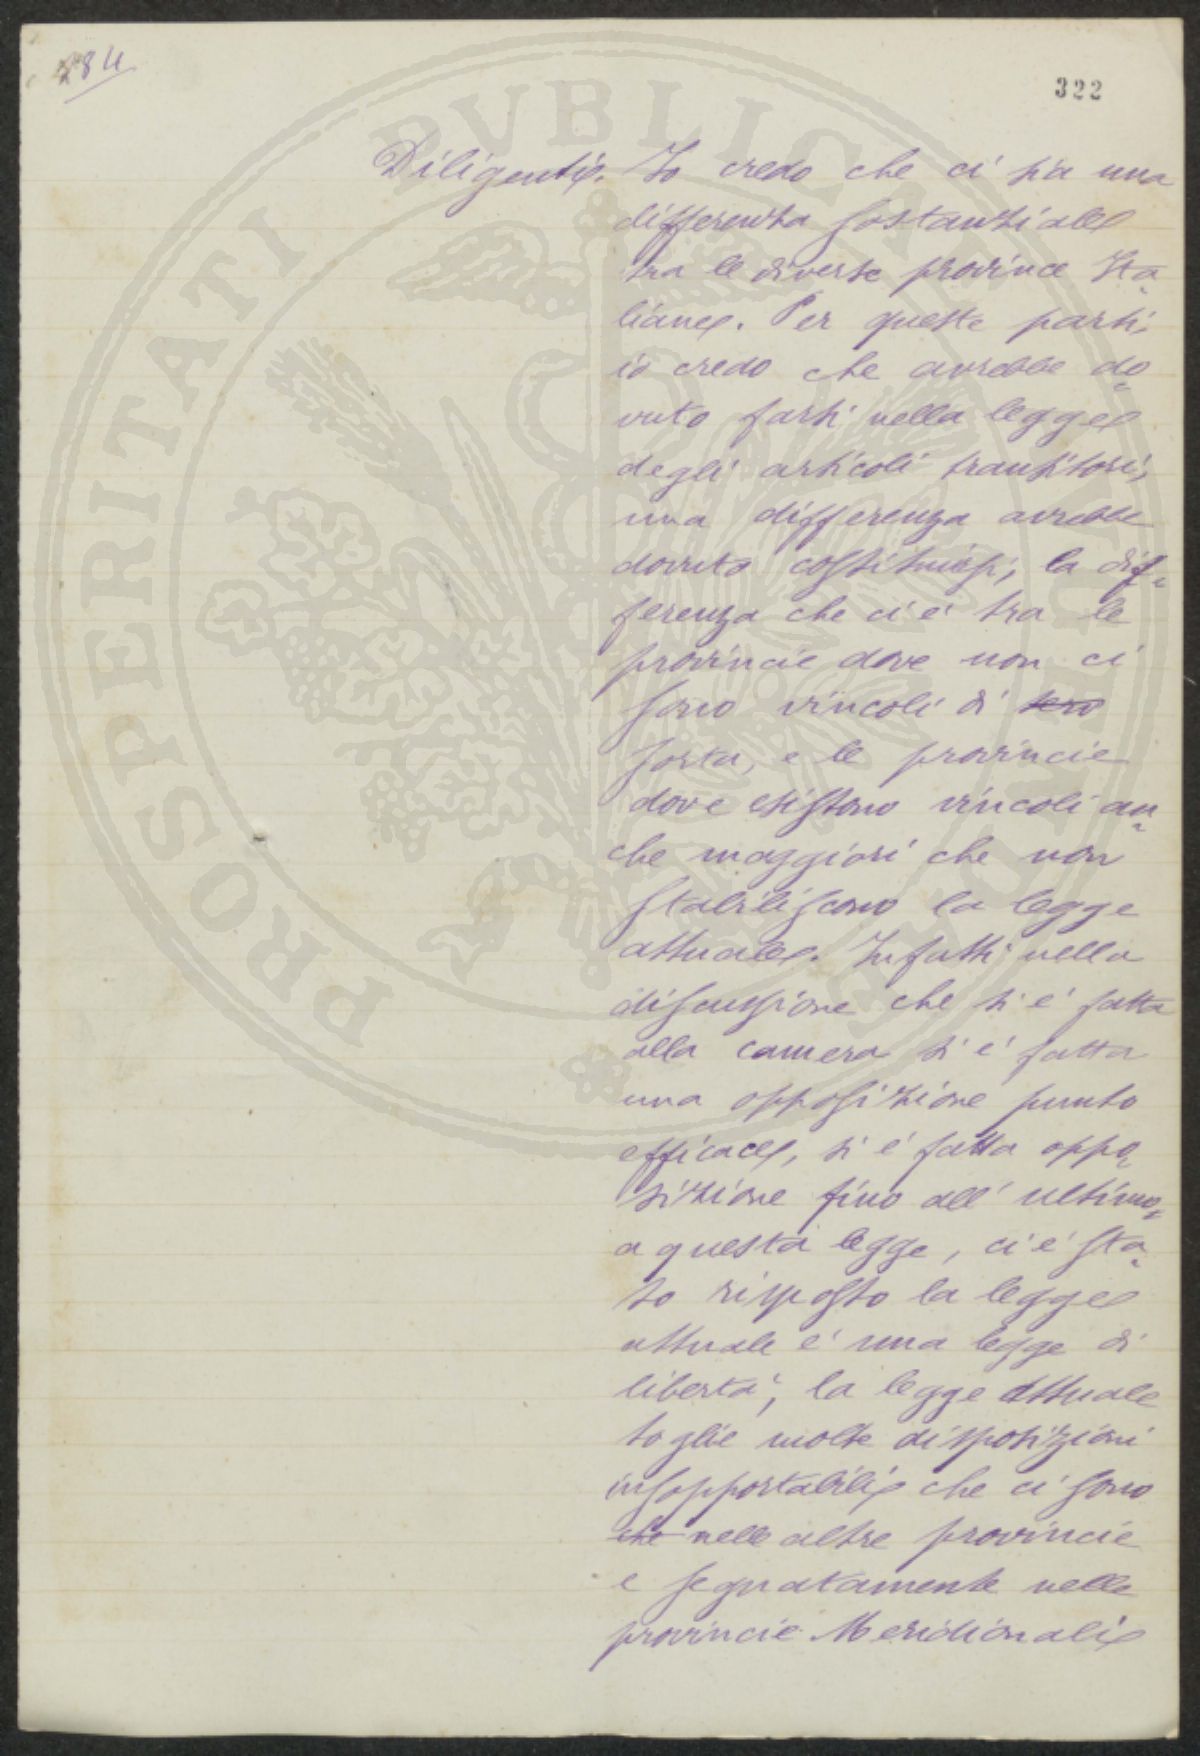 284
322
Diligenti. Io credo che ci sia una
differenza sostanziale
tra le diverse province Ita-
liane. Per queste parti,
io credo che avrebbe do-
vuto farsi nella legge
degli articoli transitori,
una differenza avrebbe
dovuto costituirsi, la dif-
ferenza che ci è tra le
provincie dove non ci
sono vincoli di sero
sorta, e le provincie
dove esistono vincoli an-
che maggiori che non
stabiliscono la legge
attuale. Infatti nella
discussione che si è fatta
alla camera si è fatta
una opposizione punto
efficace, si è fatta oppo-
sizione fino all'ultimo-
a questa legge, ci è sta-
to risposto la legge
attuale è una legge di
libertà, la legge attuale
toglie molte disposizioni
insopportabili che ci sono
che nelle altre provincie
e segnatamente nelle
provincie Meridionali
PROSPERITATI PVBLICAE